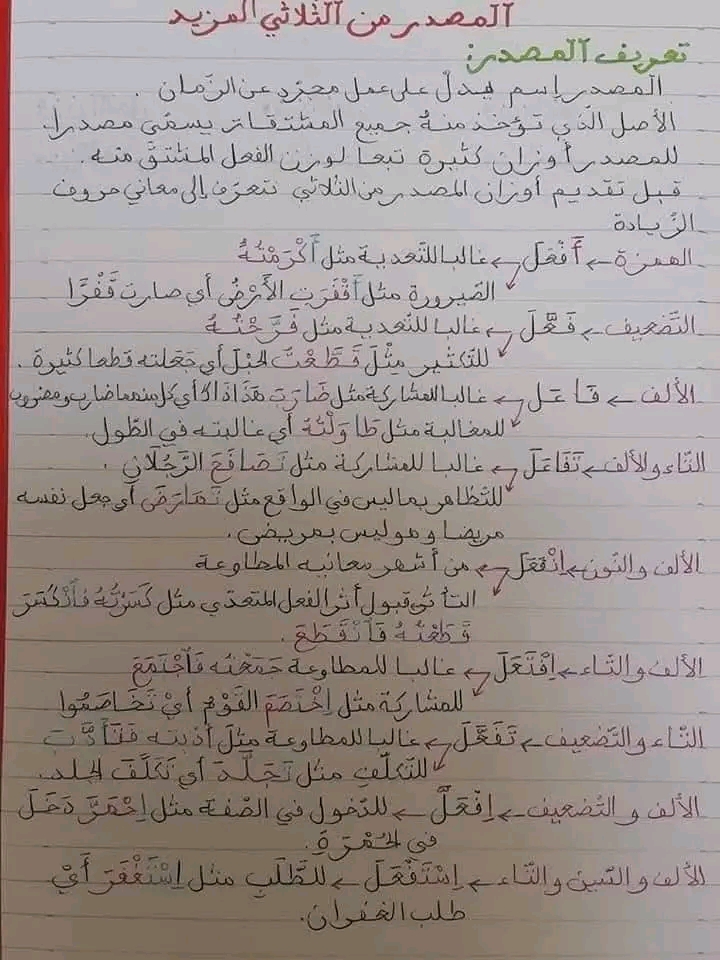 المصدر من الثلاثي المزيد
تعريف المصدر:
المصدر إسم يدلّ على عمل مجرّد عن الزّمان .
الأصل الّذي تؤخذ منهُ جميع المشتقات يسمّى مصدرا.
للمصدر أوزان كثيرة تبعا لوزن الفعل المشتقّ منه .
قبل تقديم أوزان المصدر من الثلاثي نتعرّف إلى معاني حروف
الزّيادة
الهمزة ← أَفْعَلَ ← غالبا للتّعدية مثل أَكْرَمْتُهُ
الصّيرورة مثل أَقْفَرَتِ الأَرْضُ أي صارت قَفْرًا
التّضعيف ← فَعَّلَ ← غالبا للتّعدية مثل فَرَّحْتُهُ
للتكثير مثْلَ قَطَّعْتُ الحَبْلَ أي جَعَلته قطعا كثيرة .
الألف ← فَاعَلَ ← غالبا للمشاركة مثل ضَارَبَ هَذَا ذَاكَ أي كل منهما ضارب ومضروب
للمغالبة مثل طَاوَلْتُهُ أي غالبته في الطّول.
التّاء والألف ← تَفَاعَلَ ← غالبا للمشاركة مثل تَصَافَحَ الرَّجُلَانِ .
للتّظاهر بما ليس في الواقع مثل تَمَارَضَ أي جعل نفسه
مريضا وهو ليس بمريض.
الألف والنّون ← اِنْفَعَلَ ← من أشهر معانيه المطاوعة
التأثّر قبول أثر الفعل المتعدّي مثل كَسَرْتُهُ فَانْكَسَرَ
قَطَعْتُهُ فَانْقَطَعَ .
الألف والتّاء ← اِفْتَعَلَ ← غالبا للمطاوعة جَمَعْتُه فَاجْتَمَعَ
للمشاركة مثل اِخْتَصَمَ القَوْمُ أيْ تَخَاصَمُوا
التّاء والتّضعيف ← تَفَعَّلَ ← غالبا للمطاوعة مثلَ أدّبته فَتَأَدَّبَ
للتكلّفِ مثل تَجَلَّدَ أي تَكَلَّفَ الجلد.
الألف و التّضعيف ← اِفْعَلَّ ← للدّخول في الصّفة مثل اِحْمَرَّ دَخَلَ
في الحُمْرَةِ.
الألف والسّين والتّاء ← اِسْتَفْعَلَ ← للطّلَبِ مثل اِسْتَغْفَرَ أَيْ
طلب الغفران.